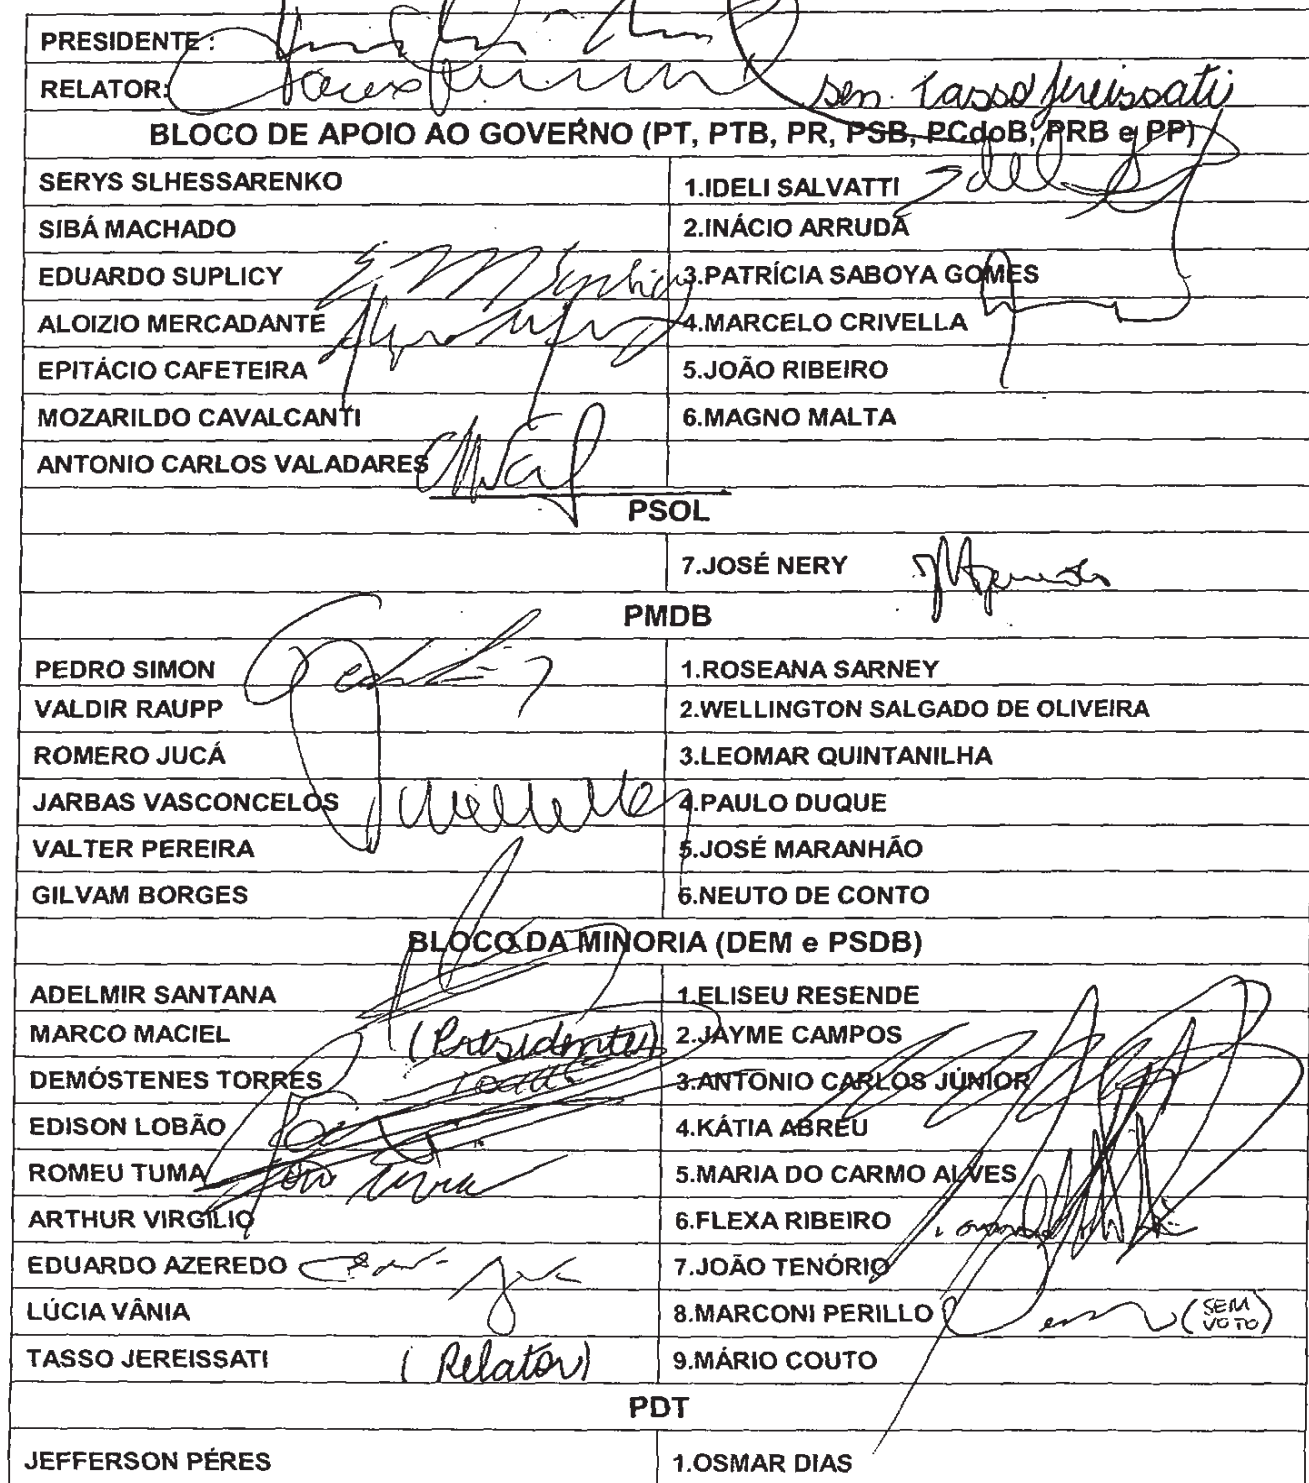 PRESIDENTE :
RELATOR: Sen. Tasso Jereissati
BLOCO DE APOIO AO GOVERNO (PT, PTB, PR, PSB, PCdoB, PRB e PP)
SERYS SLHESSARENKO 1.IDELI SALVATTI
SIBÁ MACHADO 2.INÁCIO ARRUDA
EDUARDO SUPLICY 3.PATRÍCIA SABOYA GOMES
ALOIZIO MERCADANTE 4.MARCELO CRIVELLA
EPITÁCIO CAFETEIRA 5.JOÃO RIBEIRO
MOZARILDO CAVALCANTI 6.MAGNO MALTA
ANTONIO CARLOS VALADARES
PSOL
7.JOSÉ NERY
PMDB
PEDRO SIMON 1.ROSEANA SARNEY
VALDIR RAUPP 2.WELLINGTON SALGADO DE OLIVEIRA
ROMERO JUCÁ 3.LEOMAR QUINTANILHA
JARBAS VASCONCELOS 4.PAULO DUQUE
VALTER PEREIRA 5.JOSÉ MARANHÃO
GILVAM BORGES 6.NEUTO DE CONTO
BLOCO DA MINORIA (DEM e PSDB)
ADELMIR SANTANA 1.ELISEU RESENDE
MARCO MACIEL (Presidente) 2.JAYME CAMPOS
DEMÓSTENES TORRES 3.ANTONIO CARLOS JÚNIOR
EDISON LOBÃO 4.KÁTIA ABREU
ROMEU TUMA 5.MARIA DO CARMO ALVES
ARTHUR VIRGÍLIO 6.FLEXA RIBEIRO
EDUARDO AZEREDO 7.JOÃO TENÓRIO
LÚCIA VÂNIA 8.MARCONI PERILLO (SEM VOTO)
TASSO JEREISSATI (Relator) 9.MÁRIO COUTO
PDT
JEFFERSON PÉRES 1.OSMAR DIAS